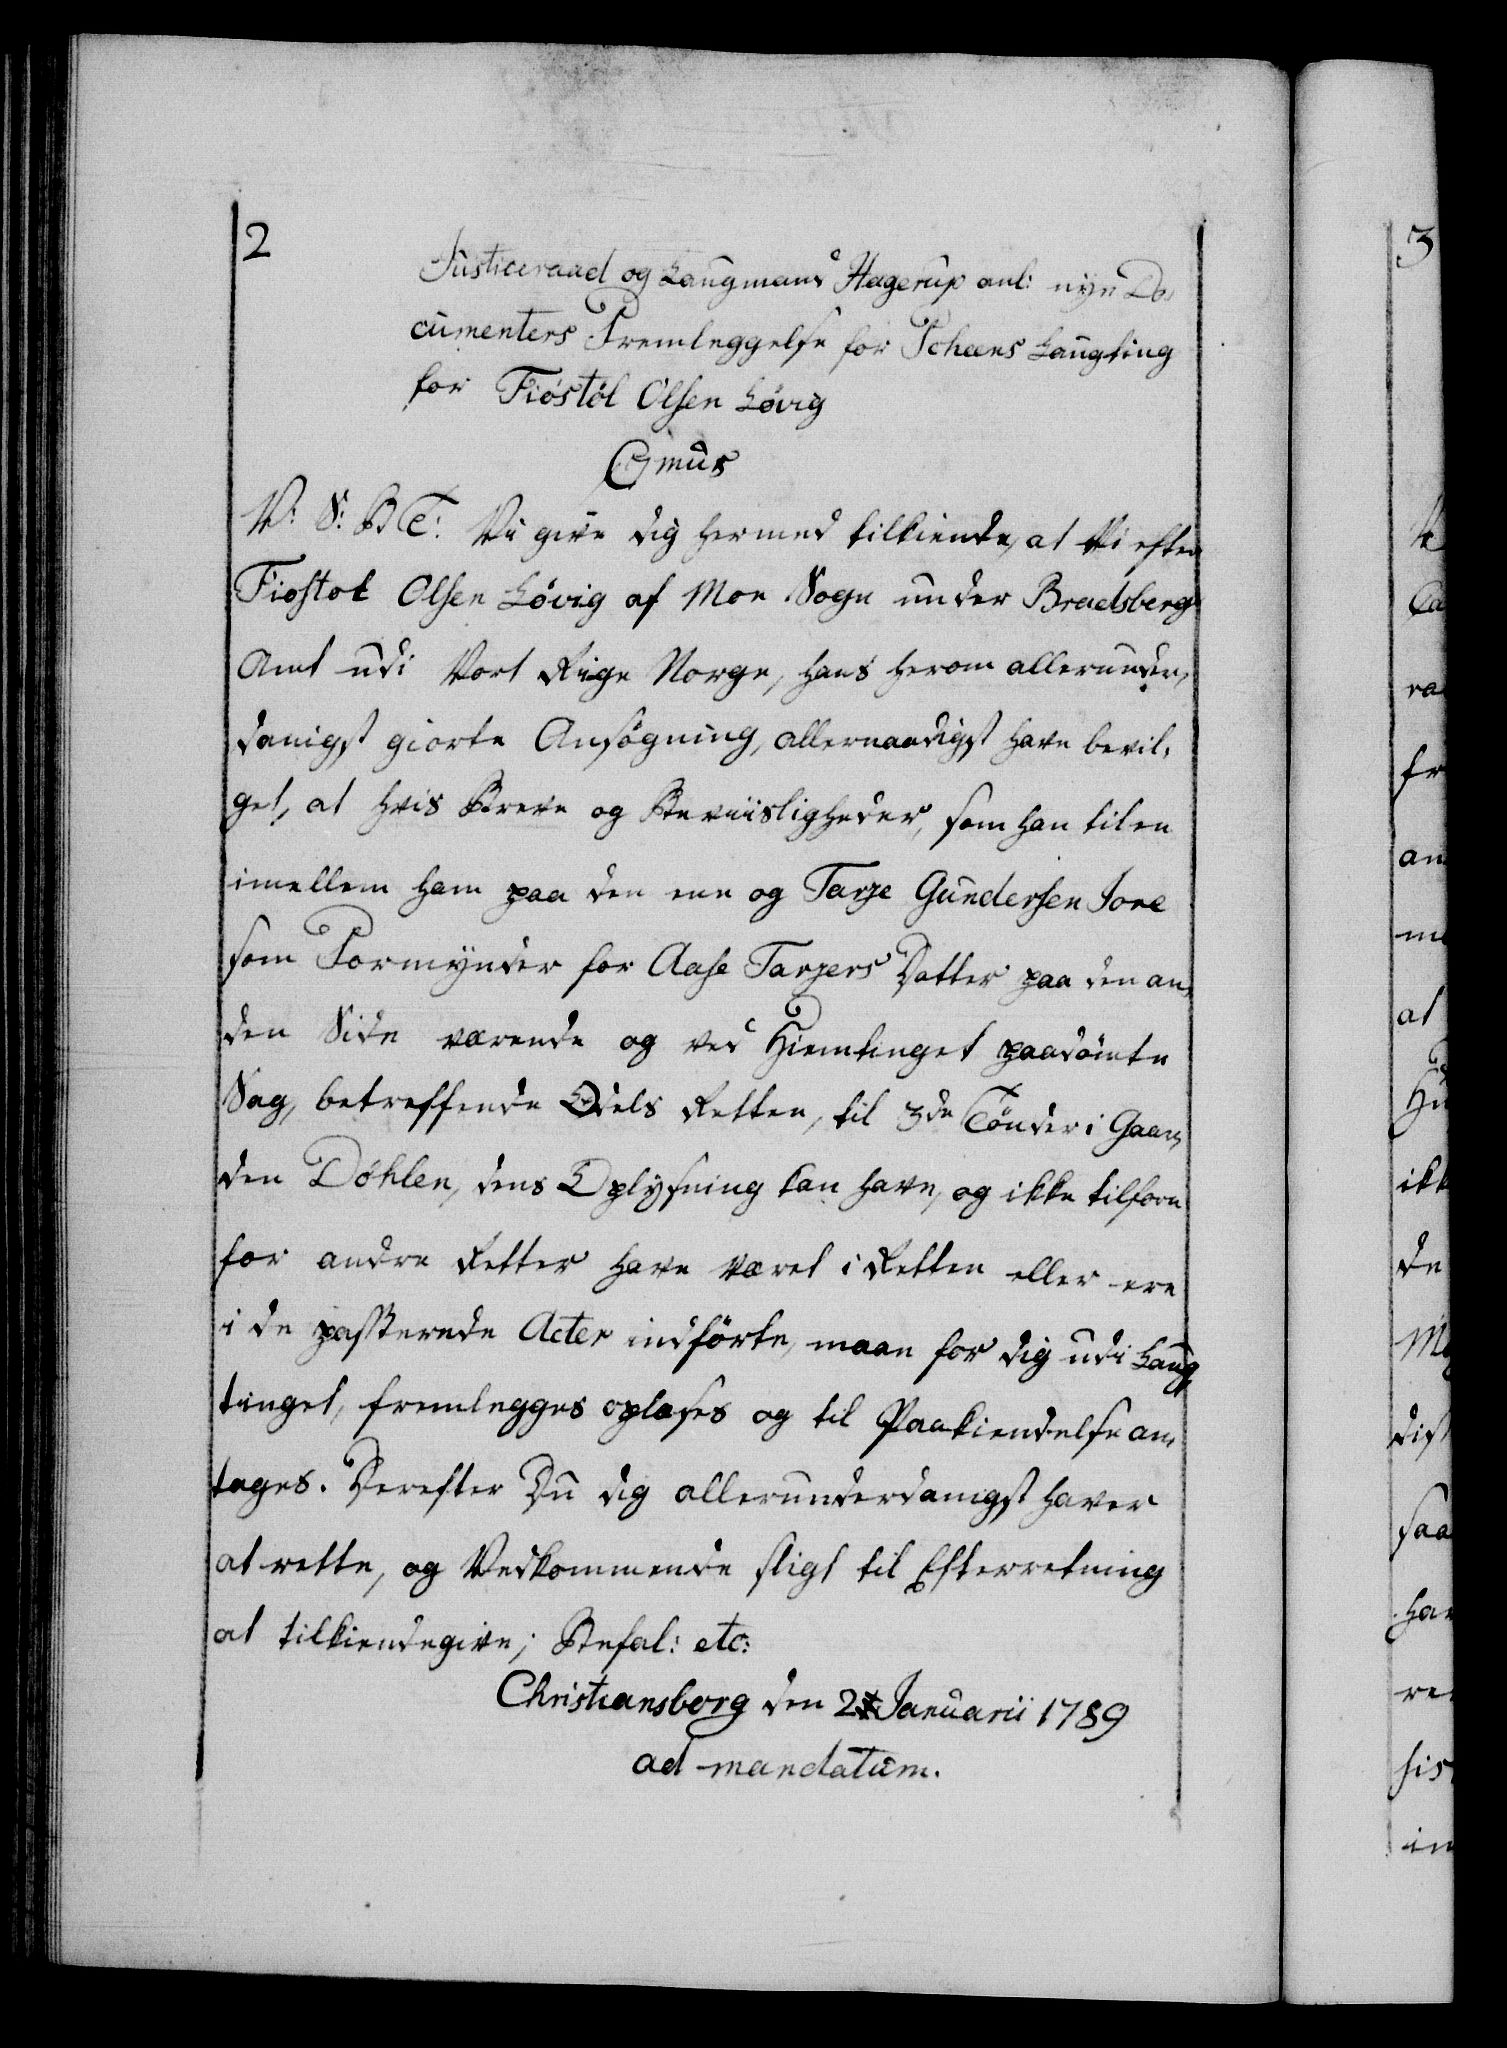 2
Justiceraad og Laugmand Hagerup anl: nye Do,
cumenters Fremleggelse for Scheens Laugting
for Fiöstöl Olsen Lövig
C7mus
V: S: B T: Vi give dig hermed tilkiende, at Vi efter
Fiostol Olsen Lövig af Moe Sogn under Bradsberg
Amt udi Vort Rige Norge, hans herom allerunder,
danigst giorte Ansögning, allernaadigst have bevil,
get, at hvis Breve og Beviisligheder, som han til en
imellem ham paa den ene og Tarje Gundersen Jore
som Formynder for Aase Tarjers Datter paa den an,
den Side værende og ved Hiemtinget paadömte
Sag, betreffende Odels Retten, til 3de Tönder i Gaar,
den Döhlen, dens Oplysning kan have, og ikke tilforn
for andre Retter have været i Retten eller ere
i de passerede Acter indförte, maae for dig udi Laug,
tinget, fremlegges oplæses og til Paakiendelse an,
tages. Derefter Du dig allerunderdanigst haver
at rette, og Vedkommende sligt til Efterretning
at tilkiendegive; Befal: etc:
Christiansborg den 2 Januarii 1789
ad mandatum.
3